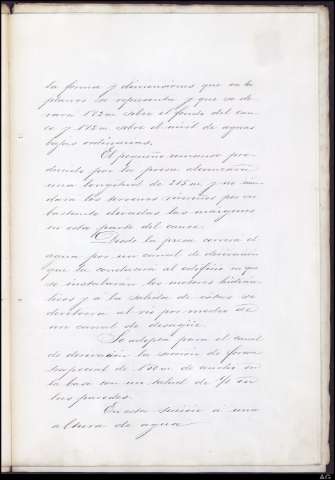 la forma y dimensiones que en los
planos se representa y que se ele-
vará sobre el fondo del cau-
ce y sobre el nivel de aguas
bajas ordinarias.
El pequeño remanso pro-
ducido por la presa alcanzará
una longitud de 215 m y no inun-
dará los terrenos vecinos por ser
bastante elevadas las margenes
en esta parte del cauce.
Desde la presa correrá el
agua por un canal de derivación
que la conducirá al edificio en que
se instalarán los motores hidráu-
licos y á la salida de estos se
devolverá al río por medio de
un canal de desagüe.
Se adopta para el canal
de derivación la sección de forma
trapecial de m. de ancho en
la base con un talud de en
las paredes.
En esta sección á una
altura de agua